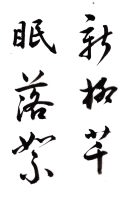 新柳芊
眠落絮